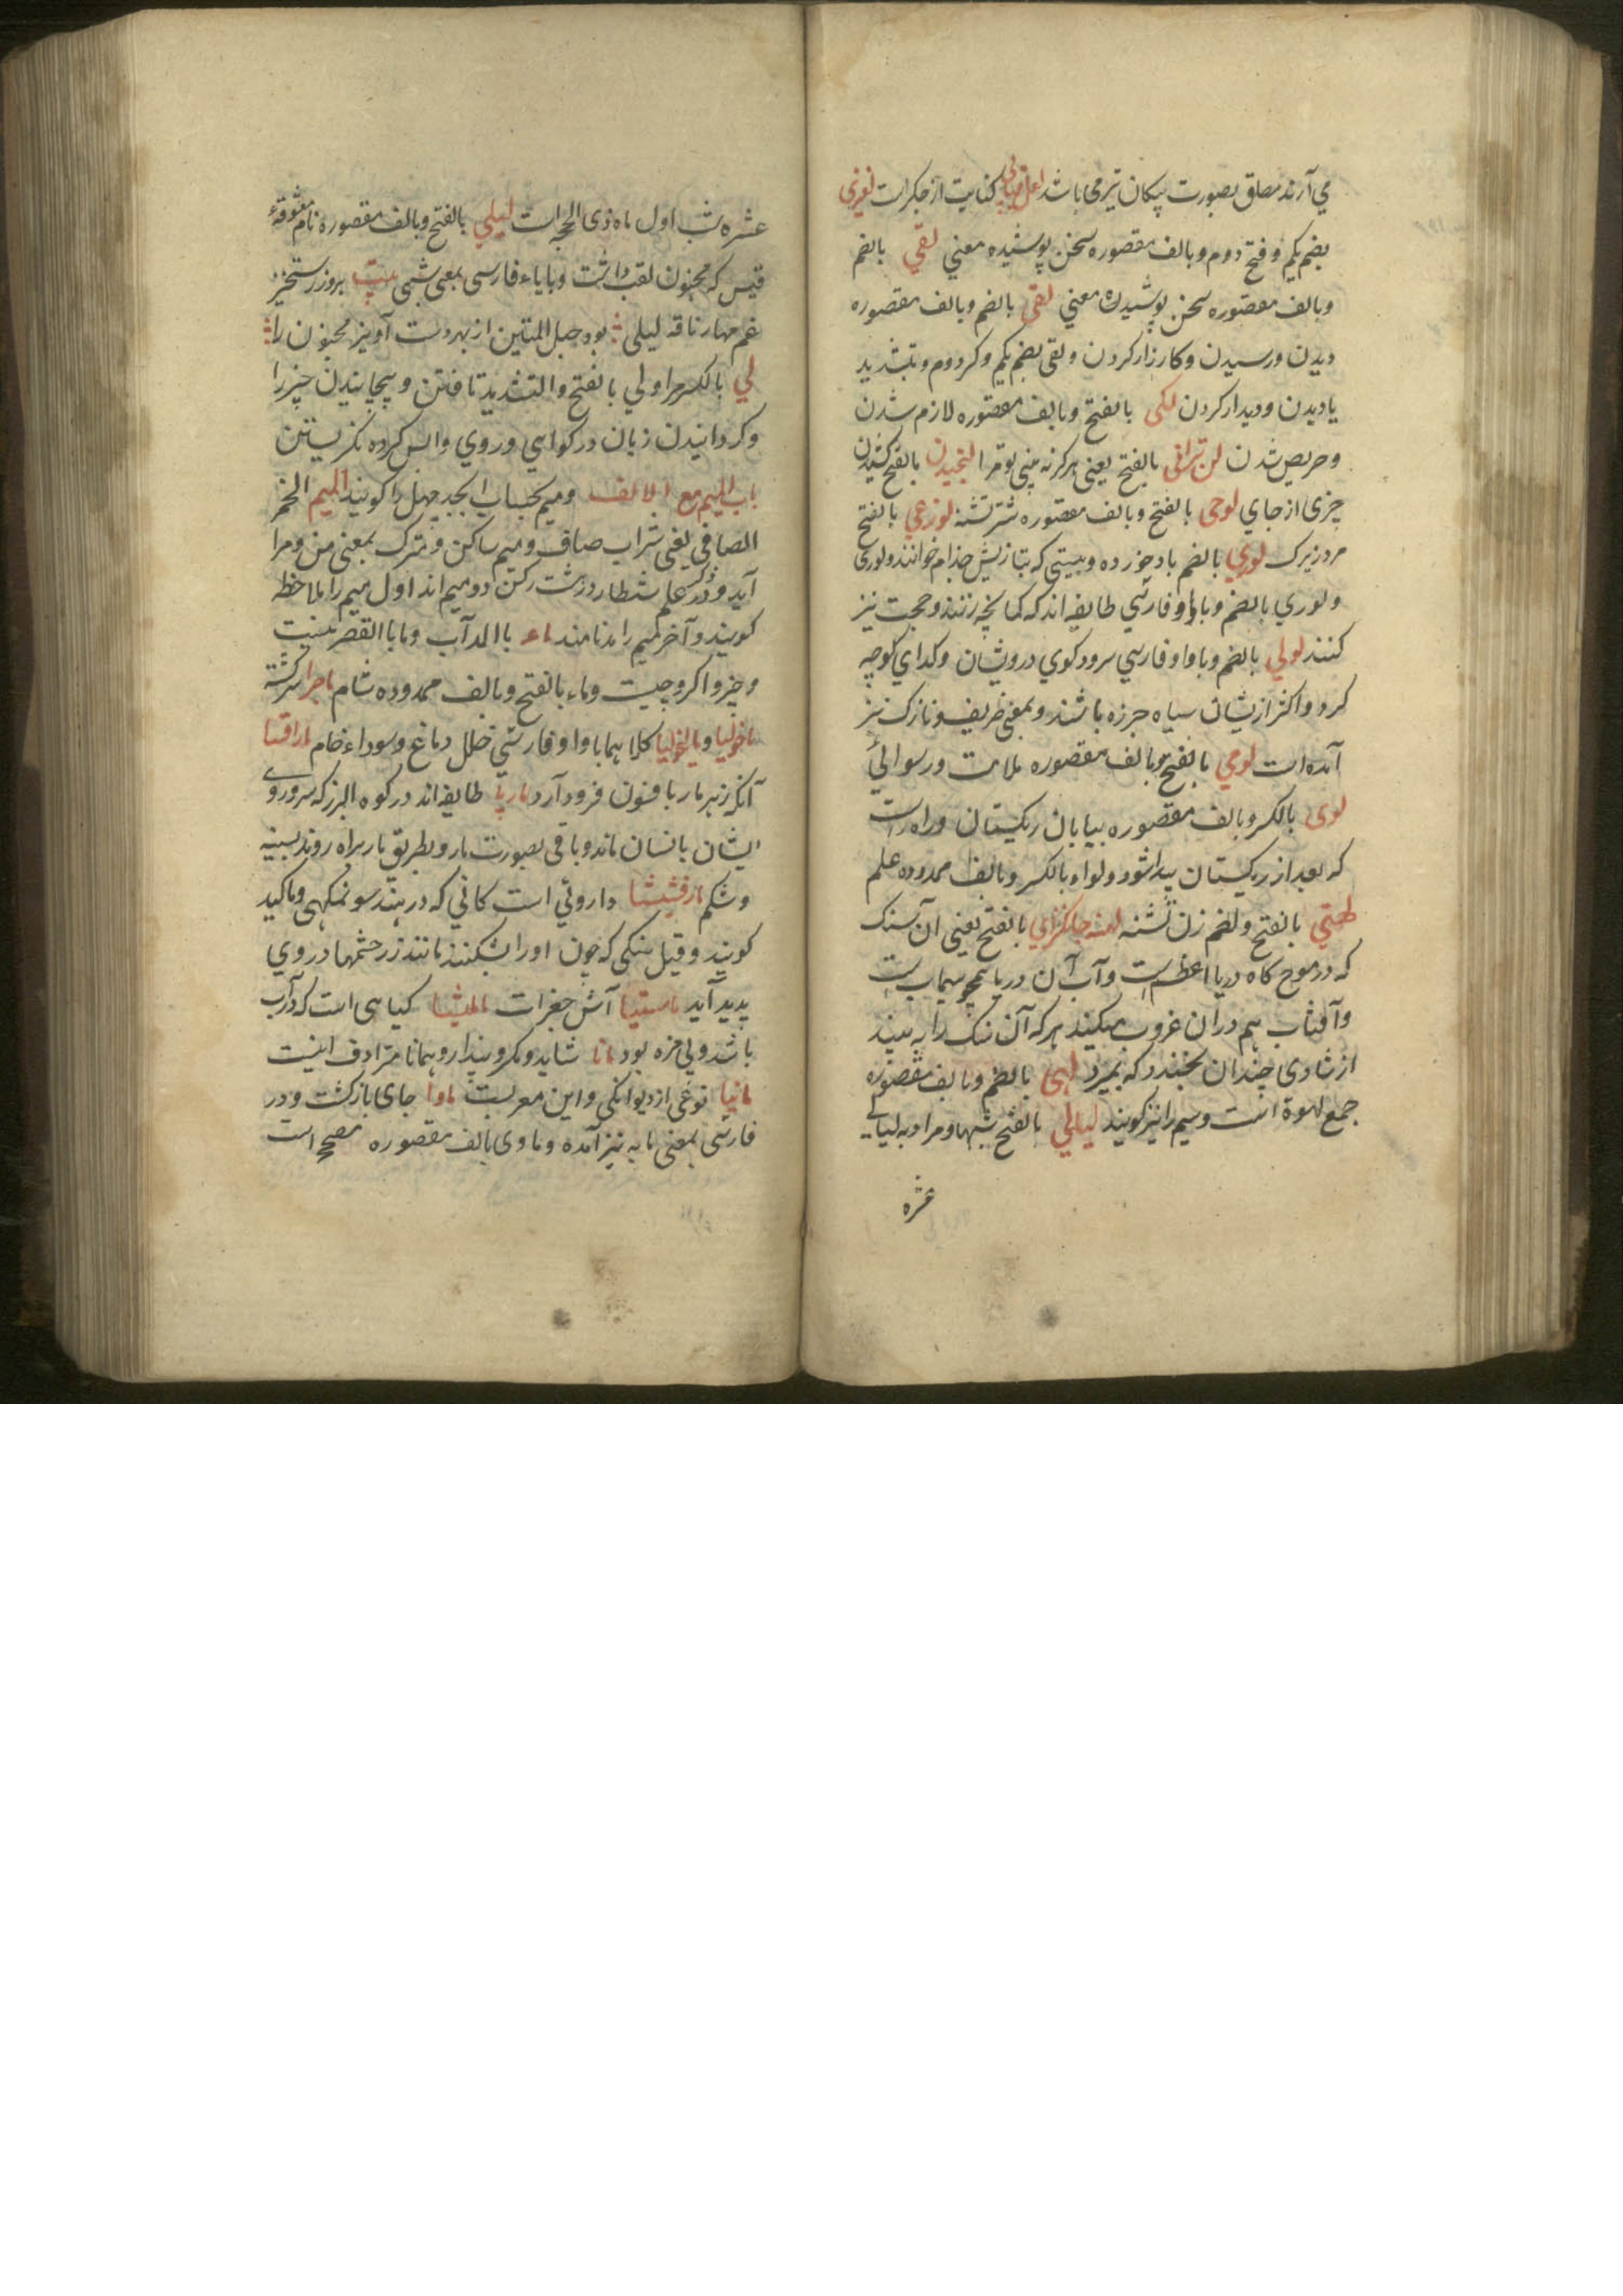 می آرند مصلق بصورت پیکان تیر می باشد کنایت از جکر است لغزی
بضم یکم و فتح دوم و بالف مقصوره سخن پوشیده معنی لقی بالضم
و بالف مقصوره سخن پوشیده معنی لقی بالضم و بالف مقصوره
دیدن و رسیدن و کارزار کردن و لقی بضم یکم و کسر دوم و بتشدید
یا دیدن و دیدار کردن لکی بالفتح و بالف مقصوره لازم شدن
و حریص شدن لن ترانی بالفتح یعنی هرگز نه بینی تو مرا لنجیدن بالفتح کشیدن
چیزی از جای لوحی بالفتح و بالف مقصوره شتر تشنه لوزعی بالفتح
مرد زیرک لوری بالضم باد خورده و بیتی که بتازیش جذام خوانند و لوری
و لوری بالضم و باواو فارسی طایفه اند که کمانچه زنند و حجت نیز
کنند لولی بالضم و باواو فارسی سرود کوی درویشان و کدای کوچه
کرد و اکثر ازیشان سیاه جرزه باشند و بمعنی ظریف و نازک نیز
آمده است لومی بالفتح و بالف مقصوره ملامت و رسوائی
لوی بالکسر و بالف مقصوره بیابان ریکستان و راه راست
که بعد از ریکستان پیدا شود و لواء بالکسر و بالف ممدوده علم
لهتی بالفتح و لضم زن تشنه لهنه جانکزای بالفتح یعنی آن سنک
که در موج کاه دریا اعظم است و آب آن دریا همچو سیماب است
و آفتاب هم دران غروب میکند هر که آن سنک را به بیند
از شادی چندان بخندد که بمیرد لهی بالضم و بالف مقصوره
جمع لهوة است و سیم را نیز کویند لیالی بالفتح شبها و مراد به لیالی
عشره
عشره شب اول ماه ذی الحجه است لیلی بالفتح و بالف مقصوره نام معشوقهٔ
قیس که مجنون لقب داشت و بایاء فارسی بمعنی شبی بیت بروز رستخیز
غم مهار ناقه لیلی ؛ بود حبل المتین از بهر دست آویز مجنون را ؛
لی بالکسر مرا و لی بالفتح و التشدید تافتن و پیچانیدن چیز را
و کردانیدن زبان در کواهی و روی واپس کرده نکریستن
باب المیم مع الالف و میم بحساب ابجد چهل را کویند المیم الخمر
الصافی یعنی شراب صاف و میم ساکن و متحرک بمعنی من و مرا
آید و در ذکر علم شطار در شت رکن دو میم اند اول میم را ملاحظه
کویند و آخر میم را مد نامند ماء باالمد آب و ما باالقصر نیست
و چیز و اکر و چیست و ماء بالفتح و بالف ممدوده شام ماجرا سرکشته
ماخولیا و مالیخولیا کلاهما باواو فارسی خلل دماغ و سوداء خام مارافسا
آنکه زهر مار با فسون فرود آرد مارپا طایفه اند در کوه البرز که سر و روی
ایشان بانسان ماند و باقی بصورت مار و بطریق مار براه روند بسینه
و شکم مارقشیشا داروئی است کانی که در هند سونمکهی و ماکید
کویند و قیل سنکی که چون او را بشکنند مانند زر چشمها در روی
پدید آید ماستیا آش جغرات مالیشا کیاهی است که در آب
باشد ولی مزه بود مانا شاید و مکر و پندار و همانا مترادف اینست
مانیا نوعی از دیوانکی و این معربست ماوا جای بازکشت و در
فارسی بمعنی مایه نیز آمده و ماوی بالف مقصوره مصحح است